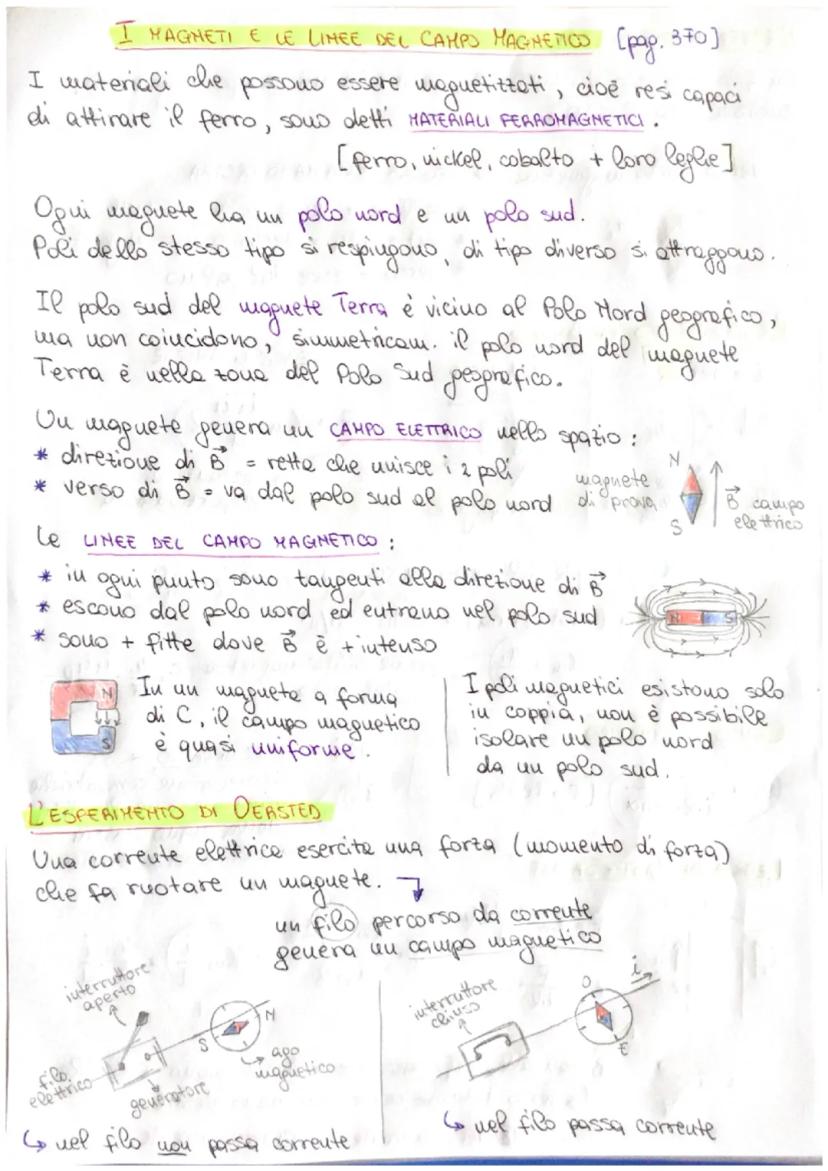 I MAGNETI E LE LINEE DEL CAMPO MAGNETICO [pag. 370]
I materiali che possono essere magnetizzati, cioè resi capaci
di attirare il ferro, sono detti MATERIALI FERROMAGNETICI.
[ferro, nickel, cobalto + loro leghe]
Ogni magnete ha un polo nord e un polo sud.
Poli dello stesso tipo si respingono, di tipo diverso si attraggono.
Il polo sud del magnete Terra è vicino al Polo Nord geografico,
ma non coincidono, simmetricam. il polo nord del magnete
Terra è nella zona del Polo Sud geografico.
Un magnete genera un CAMPO ELETTRICO nello spazio:
* direzione di B = retta che unisce i 2 poli
* verso di B = va dal polo sud al polo nord
magnete
di prova
N
S
B campo
elettrico
Le LINEE DEL CAMPO MAGNETICO:
* in ogni punto sono tangenti alla direzione di B
* escono dal polo nord ed entrano nel polo sud
* sono + fitte dove B è + intenso
N S
N
S
In un magnete a forma
di C, il campo magnetico
è quasi uniforme.
I poli magnetici esistono solo
in coppia, non è possibile
isolare un polo nord
da un polo sud.
L'ESPERIMENTO DI OERSTED
Una corrente elettrica esercita una forza (momento di forza)
che fa ruotare un magnete.
un filo percorso da corrente
genera un campo magnetico
interruttore
aperto
N
S
ago
magnetico
filo
elettrico
generatore
↳ nel filo non passa corrente
interruttore
chiuso
O
i
E
↳ nel filo passa corrente